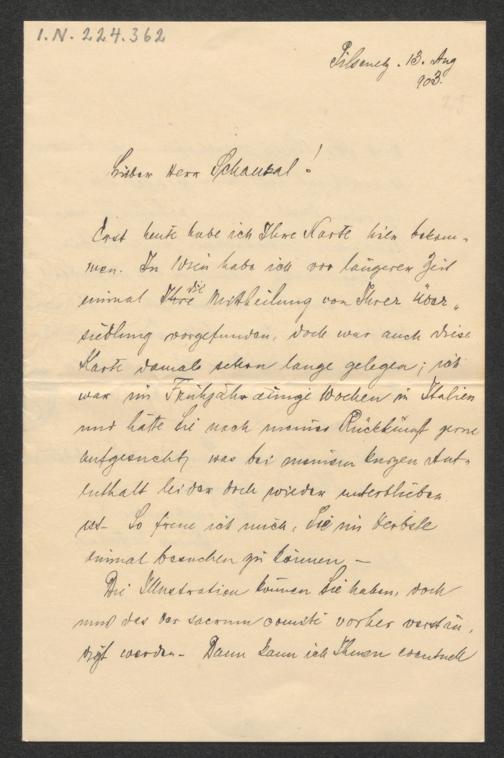 I.N. 224.362
Pilsenetz. 13. Aug
903.
25
Lieber Herr Schaukal!
Erst heute habe ich Ihre Karte hier bekom-
men. In Wien habe ich vor längerer Zeit
einmal die Mittheilung von Ihrer Über-
siedlung vorgefunden, doch war auch diese
Karte damals schon lange gelegen; ich
war im Frühjahr einige Wochen in Italien
und hätte Sie nach meiner Rückkunft gerne
aufgesucht, was bei meinem kurzen Auf-
enthalt leider doch wieder unterblieben
ist. So freue ich mich, Sie im Herbste
einmal besuchen zu können –
Die Illustration können Sie haben, doch
muß das Ver sacrum comité vorher verstän-
digt werden – Dann kann ich Ihnen eventuell